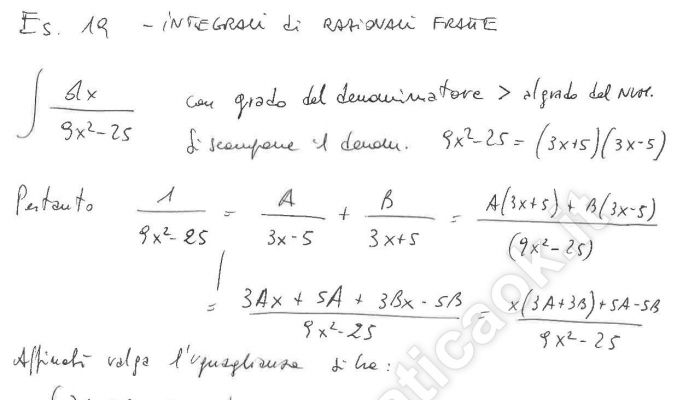 Es. 19 - INTEGRALI di RAZIONALI FRATTE
∫ dx / (9x²-25) con grado del denominatore > al grado del Num.
Si scompone il denom. 9x²-25 = (3x+5)(3x-5)
Pertanto 1/(9x²-25) = A/(3x-5) + B/(3x+5) = (A(3x+5) + B(3x-5))/(9x²-25)
= (3Ax + 5A + 3Bx - 5B)/(9x²-25) = (x(3A+3B)+5A-5B)/(9x²-25)
Affinché valga l'uguaglianza si ha:
aticaok.it